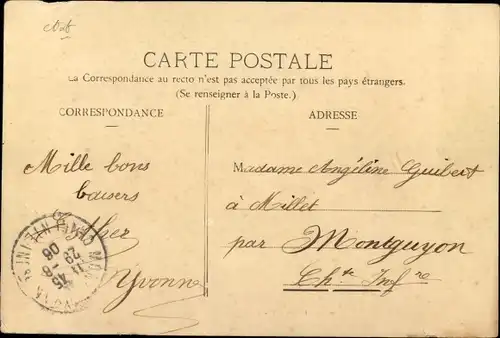 CARTE POSTALE
La Correspondance au recto n'est pas acceptée par tous les pays étrangers.
(Se renseigner à la Poste.)
CORRESPONDANCE
ADRESSE
Mille bons
baisers
Yvonne
Madame Angéline Guibert
à Millet
par Montguyon
Ch.te Inf.re